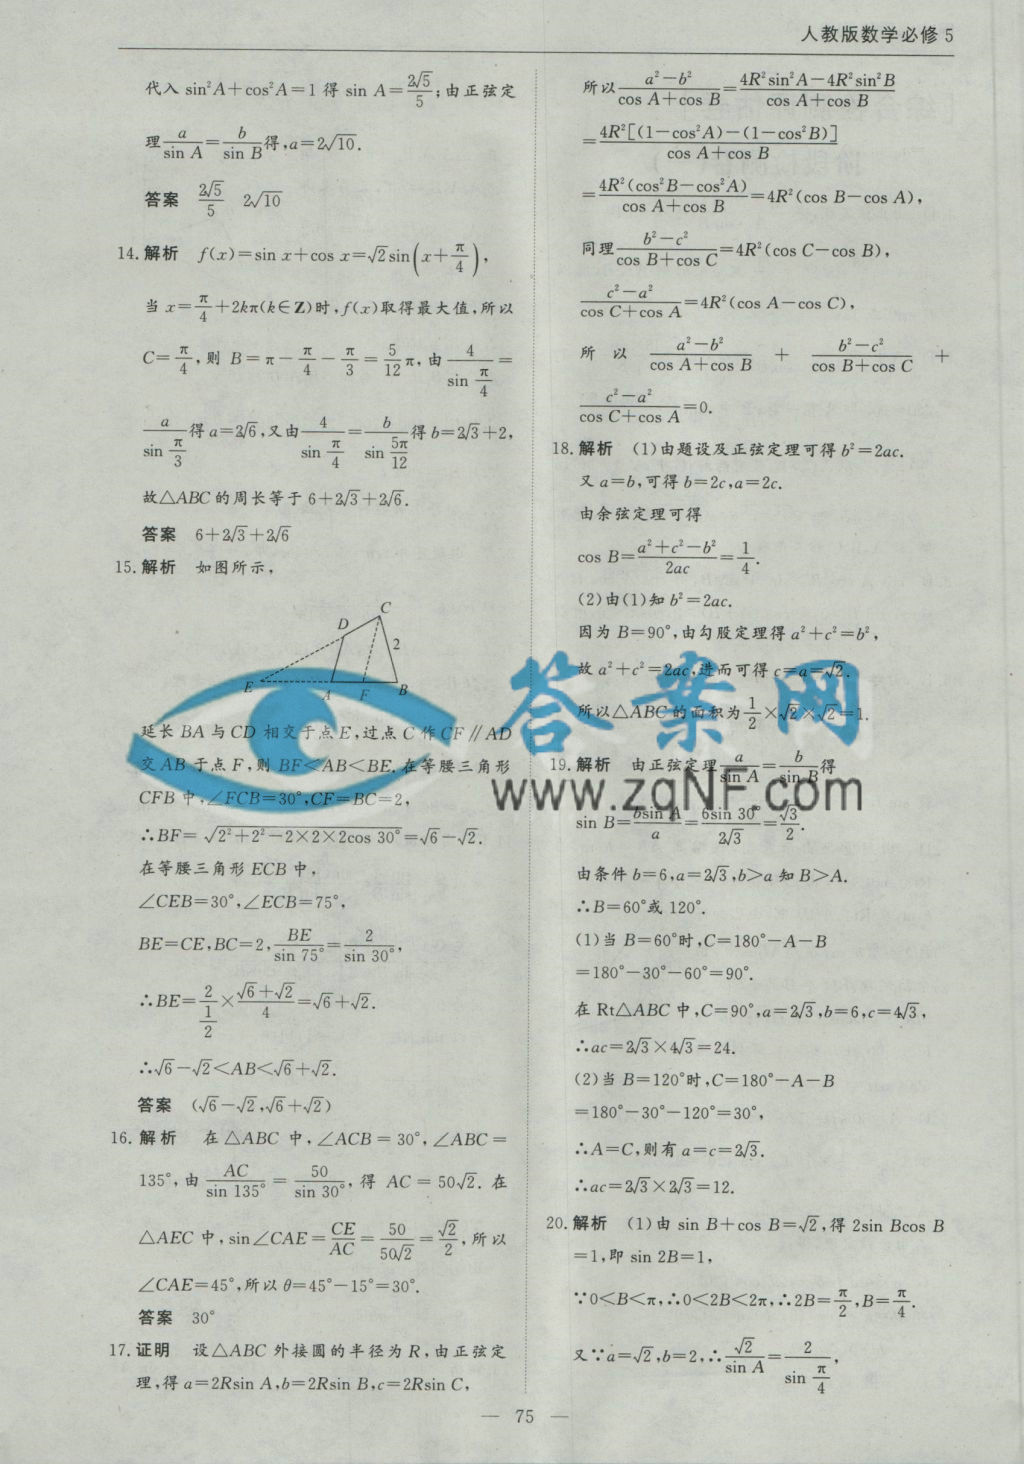 人教版数学必修 5
代入 sin²A+cos²A=1 得 sin A=2√5/5;由正弦定
理 a/sin A=b/sin B 得,a=2√10.
答案 2√5/5 2√10
14.解析 f(x)=sin x+cos x=√2sin(x+π/4),
当 x=π/4+2kπ(k∈Z)时,f(x)取得最大值,所以
C=π/4,则 B=π-π/4-π/3=5/12π,由 4/sin π/4=
a/sin π/3 得 a=2√6,又由 4/sin π/4=b/sin 5π/12 得 b=2√3+2,
故△ABC 的周长等于 6+2√3+2√6.
答案 6+2√3+2√6
15.解析 如图所示,
C
D
2
E A F B
延长 BA 与 CD 相交于点 E,过点 C 作 CF∥AD
交 AB 于点 F,则 BF<AB<BE.在等腰三角形
CFB 中,∠FCB=30°,CF=BC=2,
∴BF=√(2²+2²-2×2×2cos 30°)=√6-√2.
在等腰三角形 ECB 中,
∠CEB=30°,∠ECB=75°,
BE=CE,BC=2,BE/sin 75°=2/sin 30°,
∴BE=2/(1/2)×(√6+√2)/4=√6+√2.
∴√6-√2<AB<√6+√2.
答案 (√6-√2,√6+√2)
16.解析 在△ABC 中,∠ACB=30°,∠ABC=
135°,由 AC/sin 135°=50/sin 30°,得 AC=50√2.在
△AEC 中,sin∠CAE=CE/AC=50/50√2=√2/2,所以
∠CAE=45°,所以 θ=45°-15°=30°.
答案 30°
17.证明 设△ABC 外接圆的半径为 R,由正弦定
理,得 a=2Rsin A,b=2Rsin B,c=2Rsin C,
所以 (a²-b²)/(cos A+cos B)=(4R²sin²A-4R²sin²B)/(cos A+cos B)
=4R²[(1-cos²A)-(1-cos²B)]/(cos A+cos B)
=4R²(cos²B-cos²A)/(cos A+cos B)=4R²(cos B-cos A),
同理 (b²-c²)/(cos B+cos C)=4R²(cos C-cos B),
(c²-a²)/(cos C+cos A)=4R²(cos A-cos C),
所以 (a²-b²)/(cos A+cos B) + (b²-c²)/(cos B+cos C) +
(c²-a²)/(cos C+cos A)=0.
18.解析 (1)由题设及正弦定理可得 b²=2ac.
又 a=b,可得 b=2c,a=2c.
由余弦定理可得
cos B=(a²+c²-b²)/2ac=1/4.
(2)由(1)知 b²=2ac.
因为 B=90°,由勾股定理得 a²+c²=b²,
故 a²+c²=2ac,进而可得 c=a=√2.
所以△ABC 的面积为 1/2×√2×√2=1.
19.解析 由正弦定理 a/sin A=b/sin B 得
sin B=bsin A/a=6sin 30°/2√3=√3/2.
由条件 b=6,a=2√3,b>a 知 B>A.
∴B=60°或 120°.
(1)当 B=60°时,C=180°-A-B
=180°-30°-60°=90°.
在 Rt△ABC 中,C=90°,a=2√3,b=6,c=4√3,
∴ac=2√3×4√3=24.
(2)当 B=120°时,C=180°-A-B
=180°-30°-120°=30°,
∴A=C,则有 a=c=2√3.
∴ac=2√3×2√3=12.
20.解析 (1)由 sin B+cos B=√2,得 2sin Bcos B
=1,即 sin 2B=1,
∵0<B<π,∴0<2B<2π,∴2B=π/2,B=π/4.
又∵a=√2,b=2,∴√2/sin A=2/sin π/4,
— 75 —
答案网
www.zqNF.com